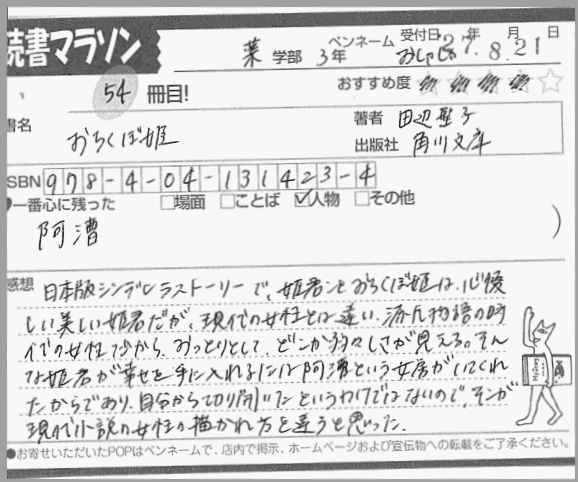 読書マラソン
薬 学部 3年 ペンネーム 受付日 27年 8月 21日
おすすめ度
54 冊目!
書名 おちくぼ姫
著者 田辺聖子
出版社 角川文庫
ISBN 978-4-04-131423-4
一番心に残った □場面 □ことば ☑人物 □その他
阿漕
感想 日本版シンデレラストーリーで、姫君ことおちくぼ姫は、心優
しい美しい姫君だが、現代の女性とは違い、源氏物語の時
代の女性だから、おっとりとして、どこか弱々しさが見える。そん
な姫君が幸せを手に入れるには阿漕という女房がいてくれ
たからであり、自分から切り開いたというわけではないので、そこが
現代小説の女性の描かれ方と違うと思った。
●お寄せいただいたPOPはペンネームで、店内で掲示、ホームページおよび宣伝物への転載をご了承ください。